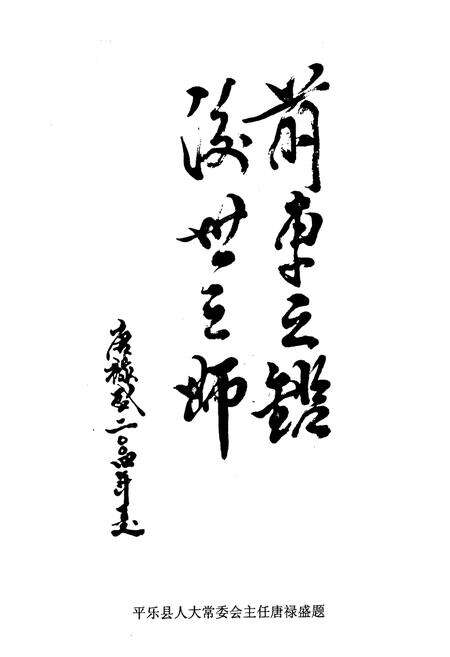 前車之鑑
後世之師
唐禄盛二〇〇四年
平乐县人大常委会主任唐禄盛题